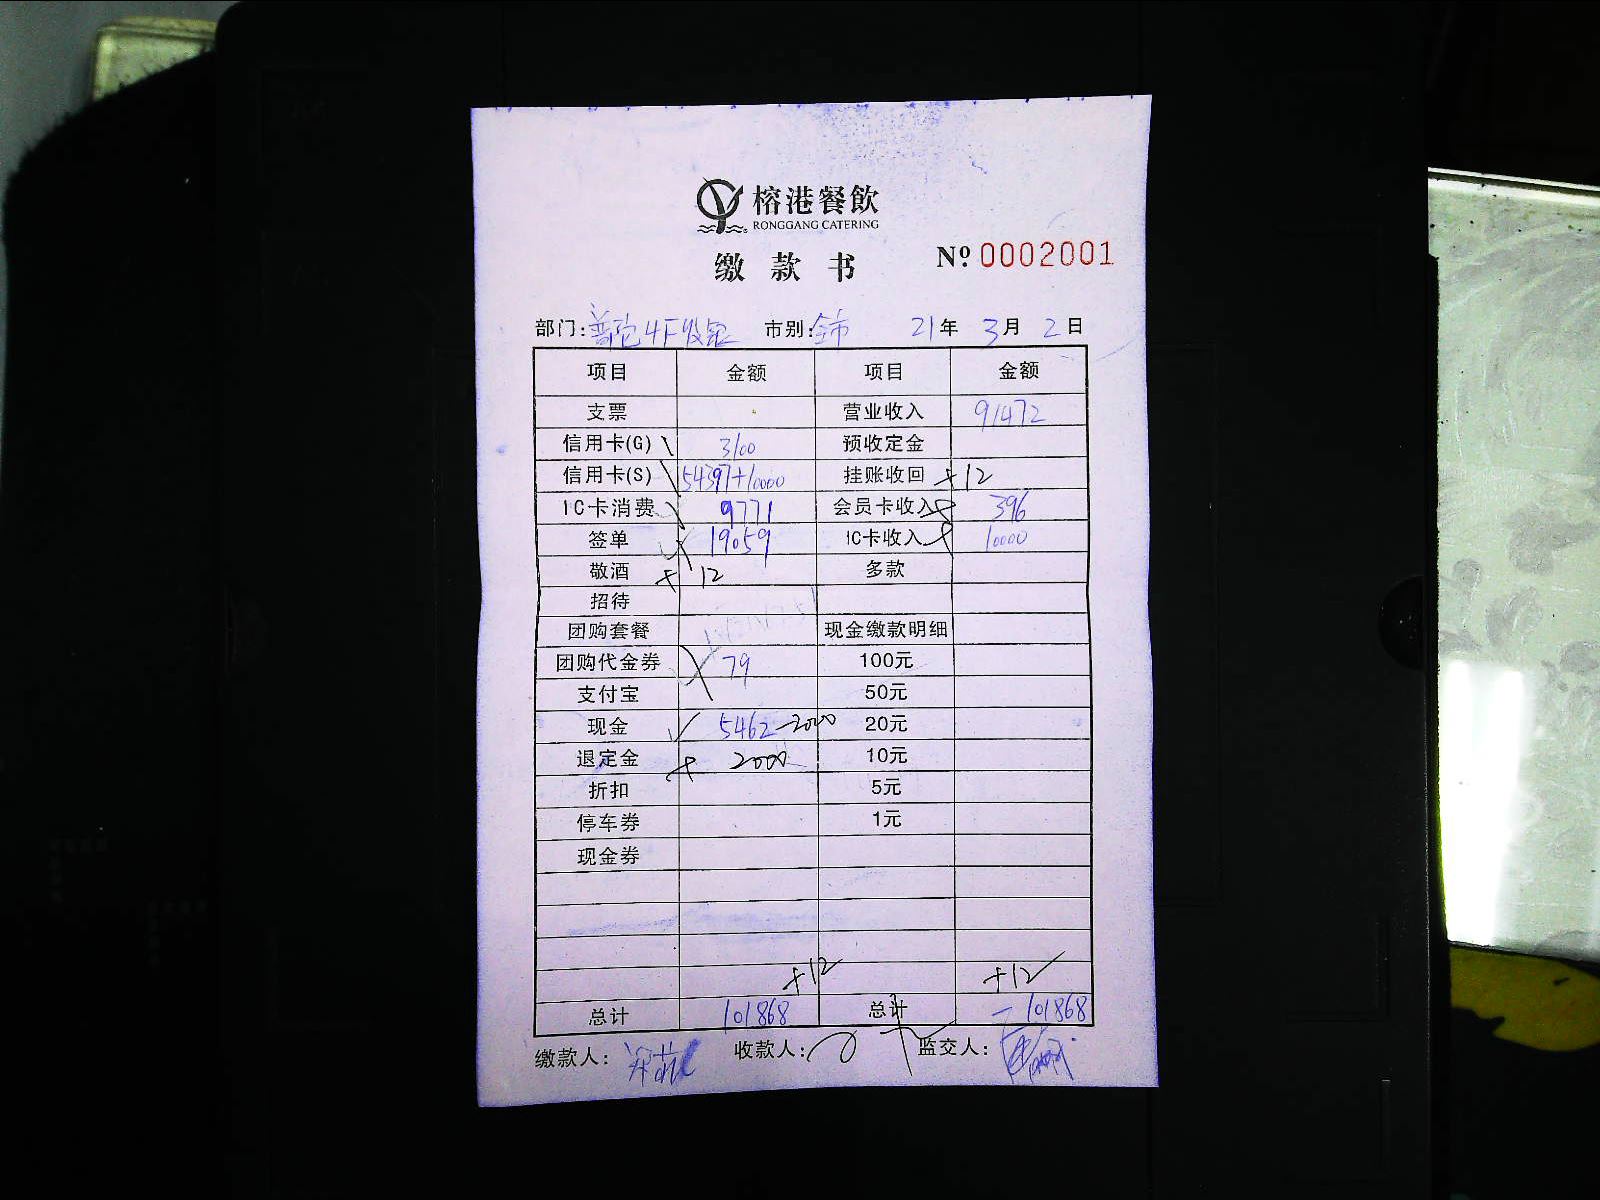 榕港餐飲
RONGGANG CATERING
缴款书 Nº 0002001
部门: 普陀4F收银 市别: 全市 21年 3月 2日
项目 金额 项目 金额
支票 营业收入 91472
信用卡(G) 3100 预收定金
信用卡(S) 54397+10000 挂账收回 +12
IC卡消费 9771 会员卡收入 396
签单 19059 IC卡收入 10000
敬酒 + 12 多款
招待
团购套餐 现金缴款明细
团购代金券 79 100元
支付宝 50元
现金 5462-2000 20元
退定金 + 2000 10元
折扣 5元
停车券 1元
现金券
+12 +12
总计 101868 总计 101868
缴款人: 收款人: 监交人: